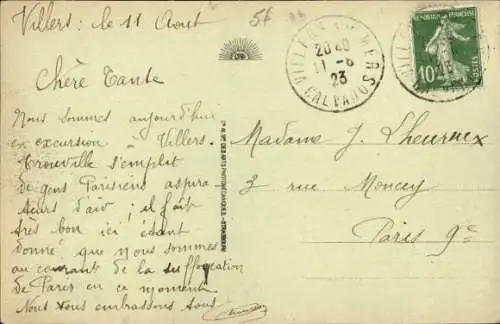 Villers : le 11 Août
5f
Chère Tante
Nous sommes aujourd'hui
en excursion à Villers.
Trouville s'emplit
de gens Parisiens aspira
teurs d'air ; il fait
très bon ici étant
donné que nous sommes
au courant de la suffocation
de Paris en ce moment
Nous vous embrassons tous
VILLERS SUR MER
20 40
11 - 8
23
CALVADOS
REPUBLIQUE FRANÇAISE
10
POSTES
Madame J. Lheureux
3 rue Moncey
Paris 9e